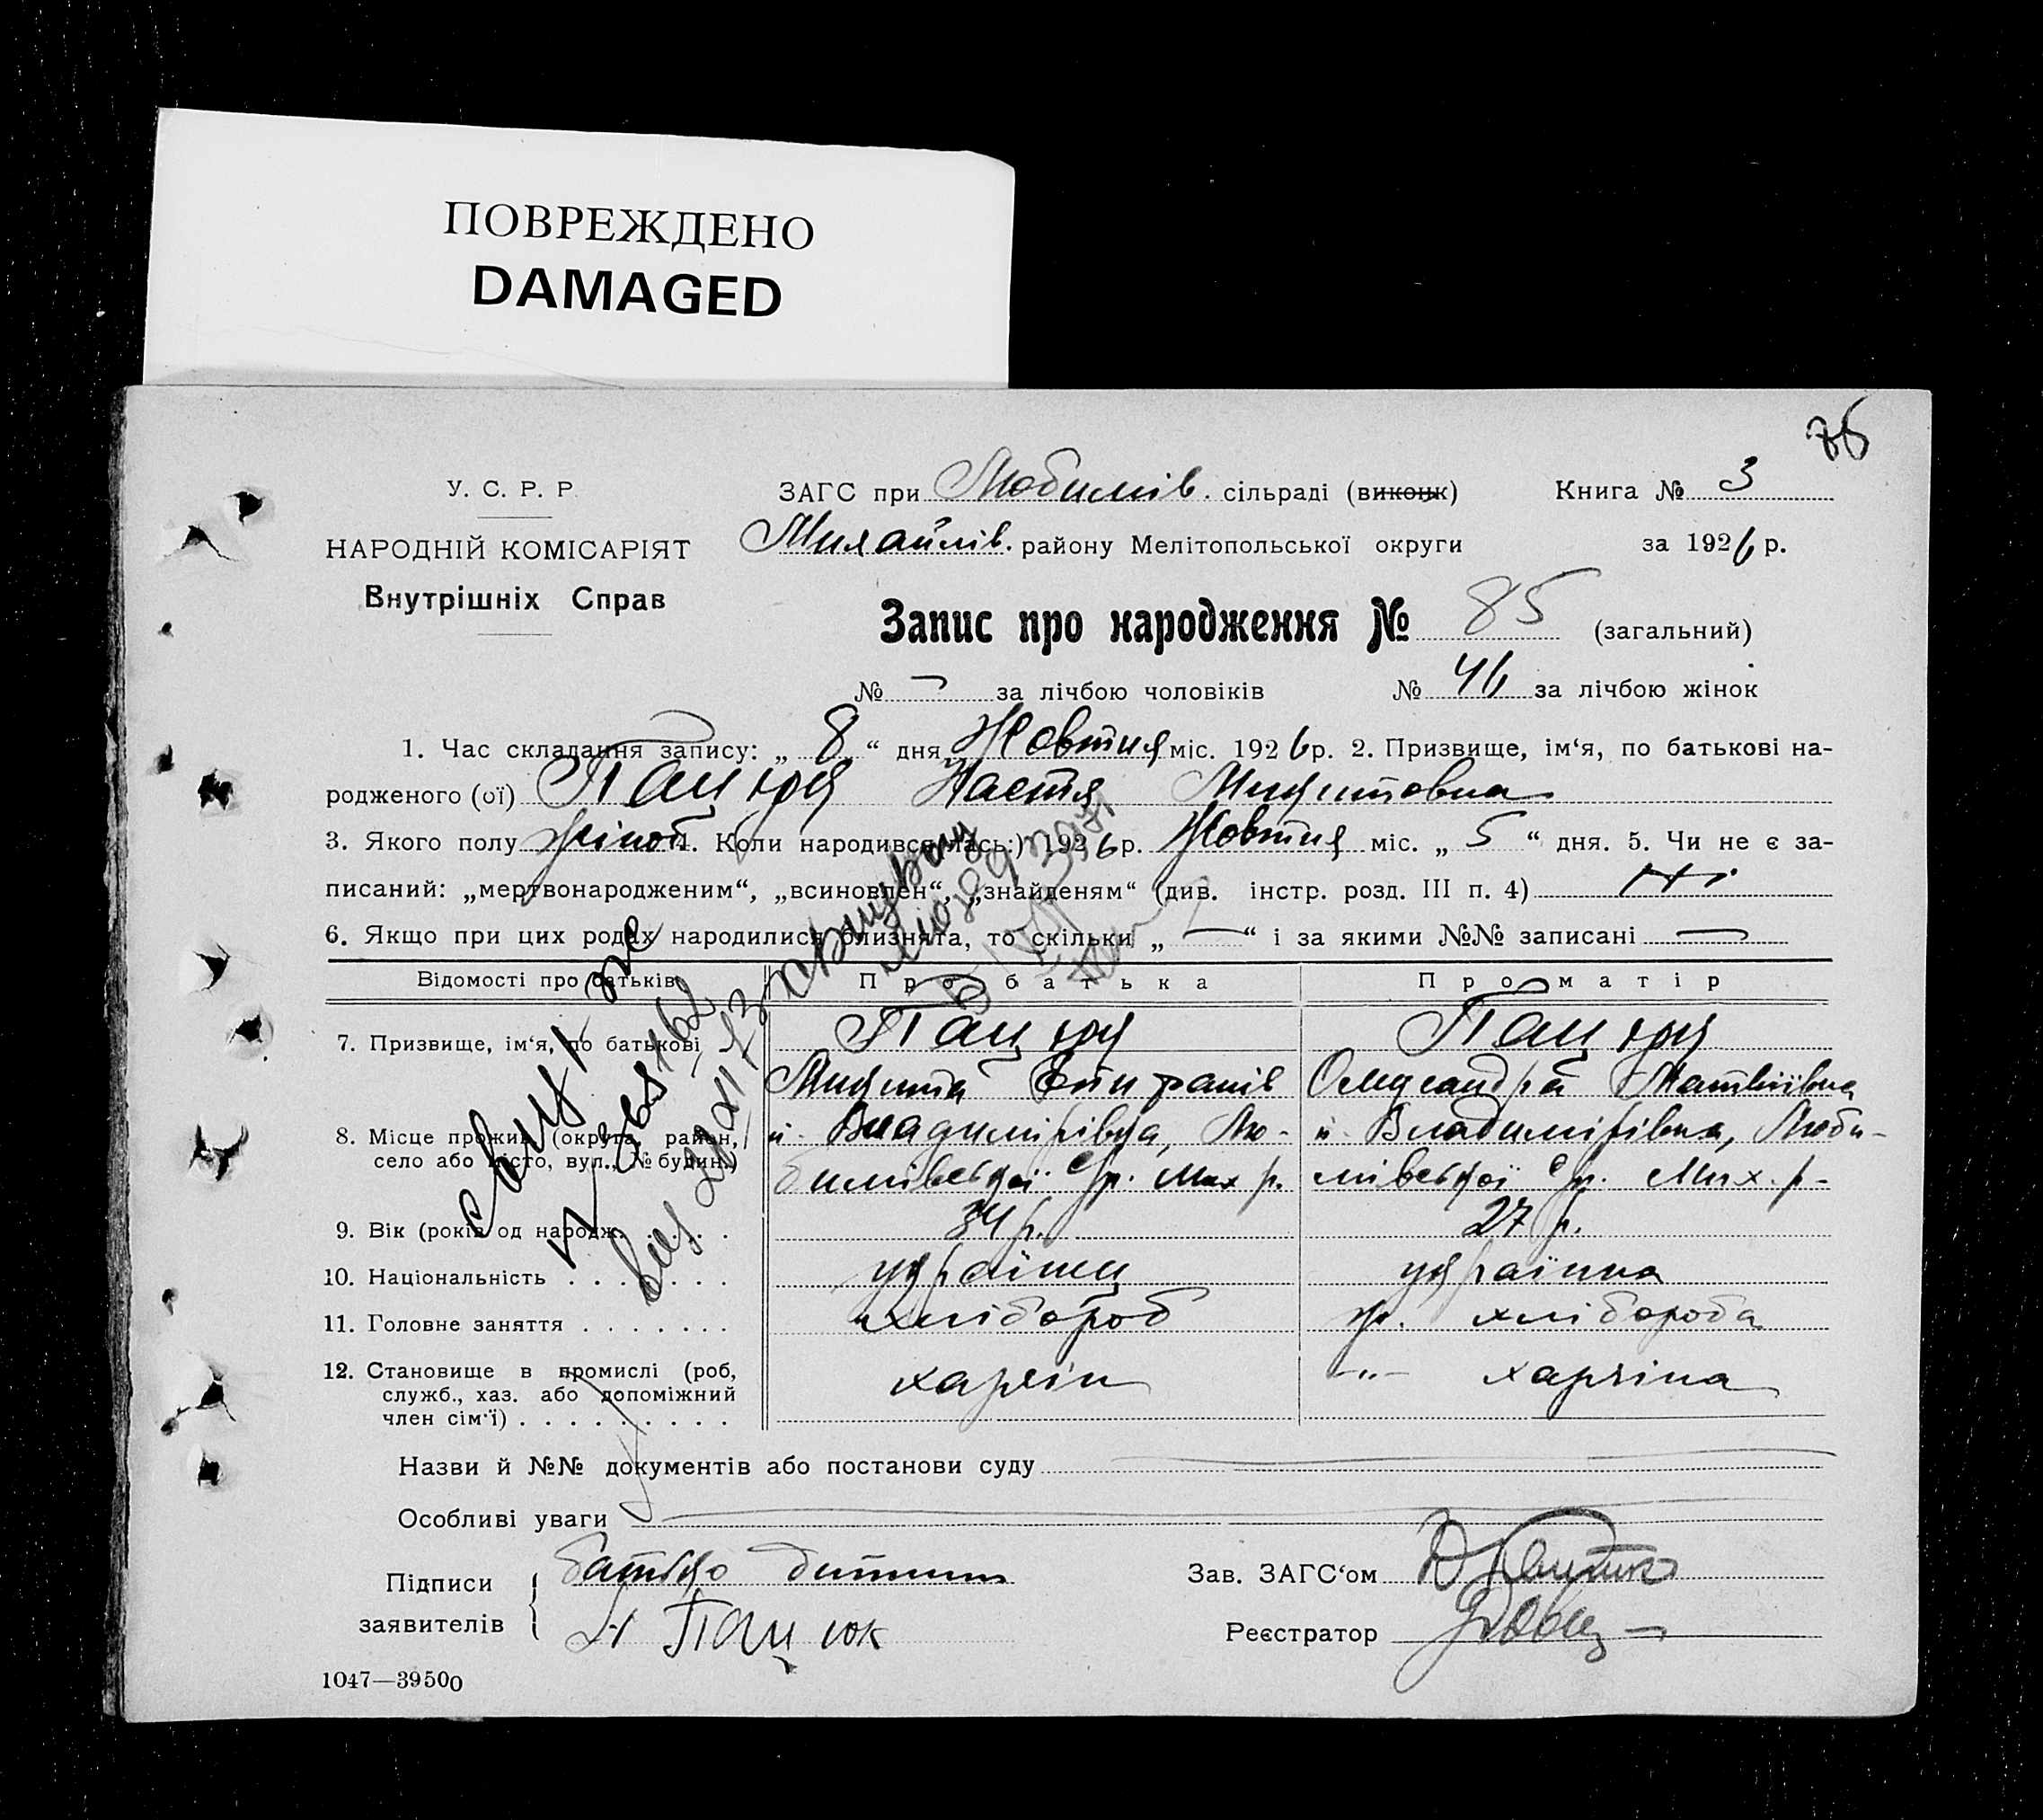 ПОВРЕЖДЕНО
DAMAGED
У. С. Р. Р
НАРОДНІЙ КОМІСАРІЯТ
Внутрішніх Справ
ЗАГС при Любимів. сільраді (виконк) Книга № 3
Михайлів. району Мелітопольської округи за 1926 р.
Запис про народження № 85 (загальний)
№ — за лічбою чоловіків № 46 за лічбою жінок
1. Час складання запису: „ 8 “ дня Жовтня міс. 1926 р. 2. Призвище, ім‘я, по батькові на-
родженого (ої) Пацюк Настя Микитовна
3. Якого полу жіноч. 4. Коли народився(лась:) 1926 р. Жовтня міс. „ 5 “ дня. 5. Чи не є за-
писаний: „мертвонародженим“, „всиновлен“, „знайденям“ (див. інстр. розд. III п. 4) Ні
6. Якщо при цих родах народилися близнята, то скільки „ — “ і за якими №№ записані —
Відомості про батьків Про батька Про матір
7. Призвище, ім‘я, по батькові Пацюк Пацюк
Микита Олександра Матвіївна
8. Місце прожив. (округа, район, село або місто, вул., № будин.) с. Владимирівка, Лю- с. Владимірівка, Люби-
бимівської с/р. Мих р. мівської с/р. Мих. р-
9. Вік (років од народж. 34 р. 27 р.
10. Національність українец українка
11. Головне заняття хлібороб хлібороба
12. Становище в промислі (роб, служб., хаз. або допоміжний член сім‘ї) хазяін -„- хазяіна
Назви й №№ документів або постанови суду
Особливі уваги
Підписи заявителів батько дитини
Пацюк
Зав. ЗАГС‘ом
Реєстратор
1047—39500